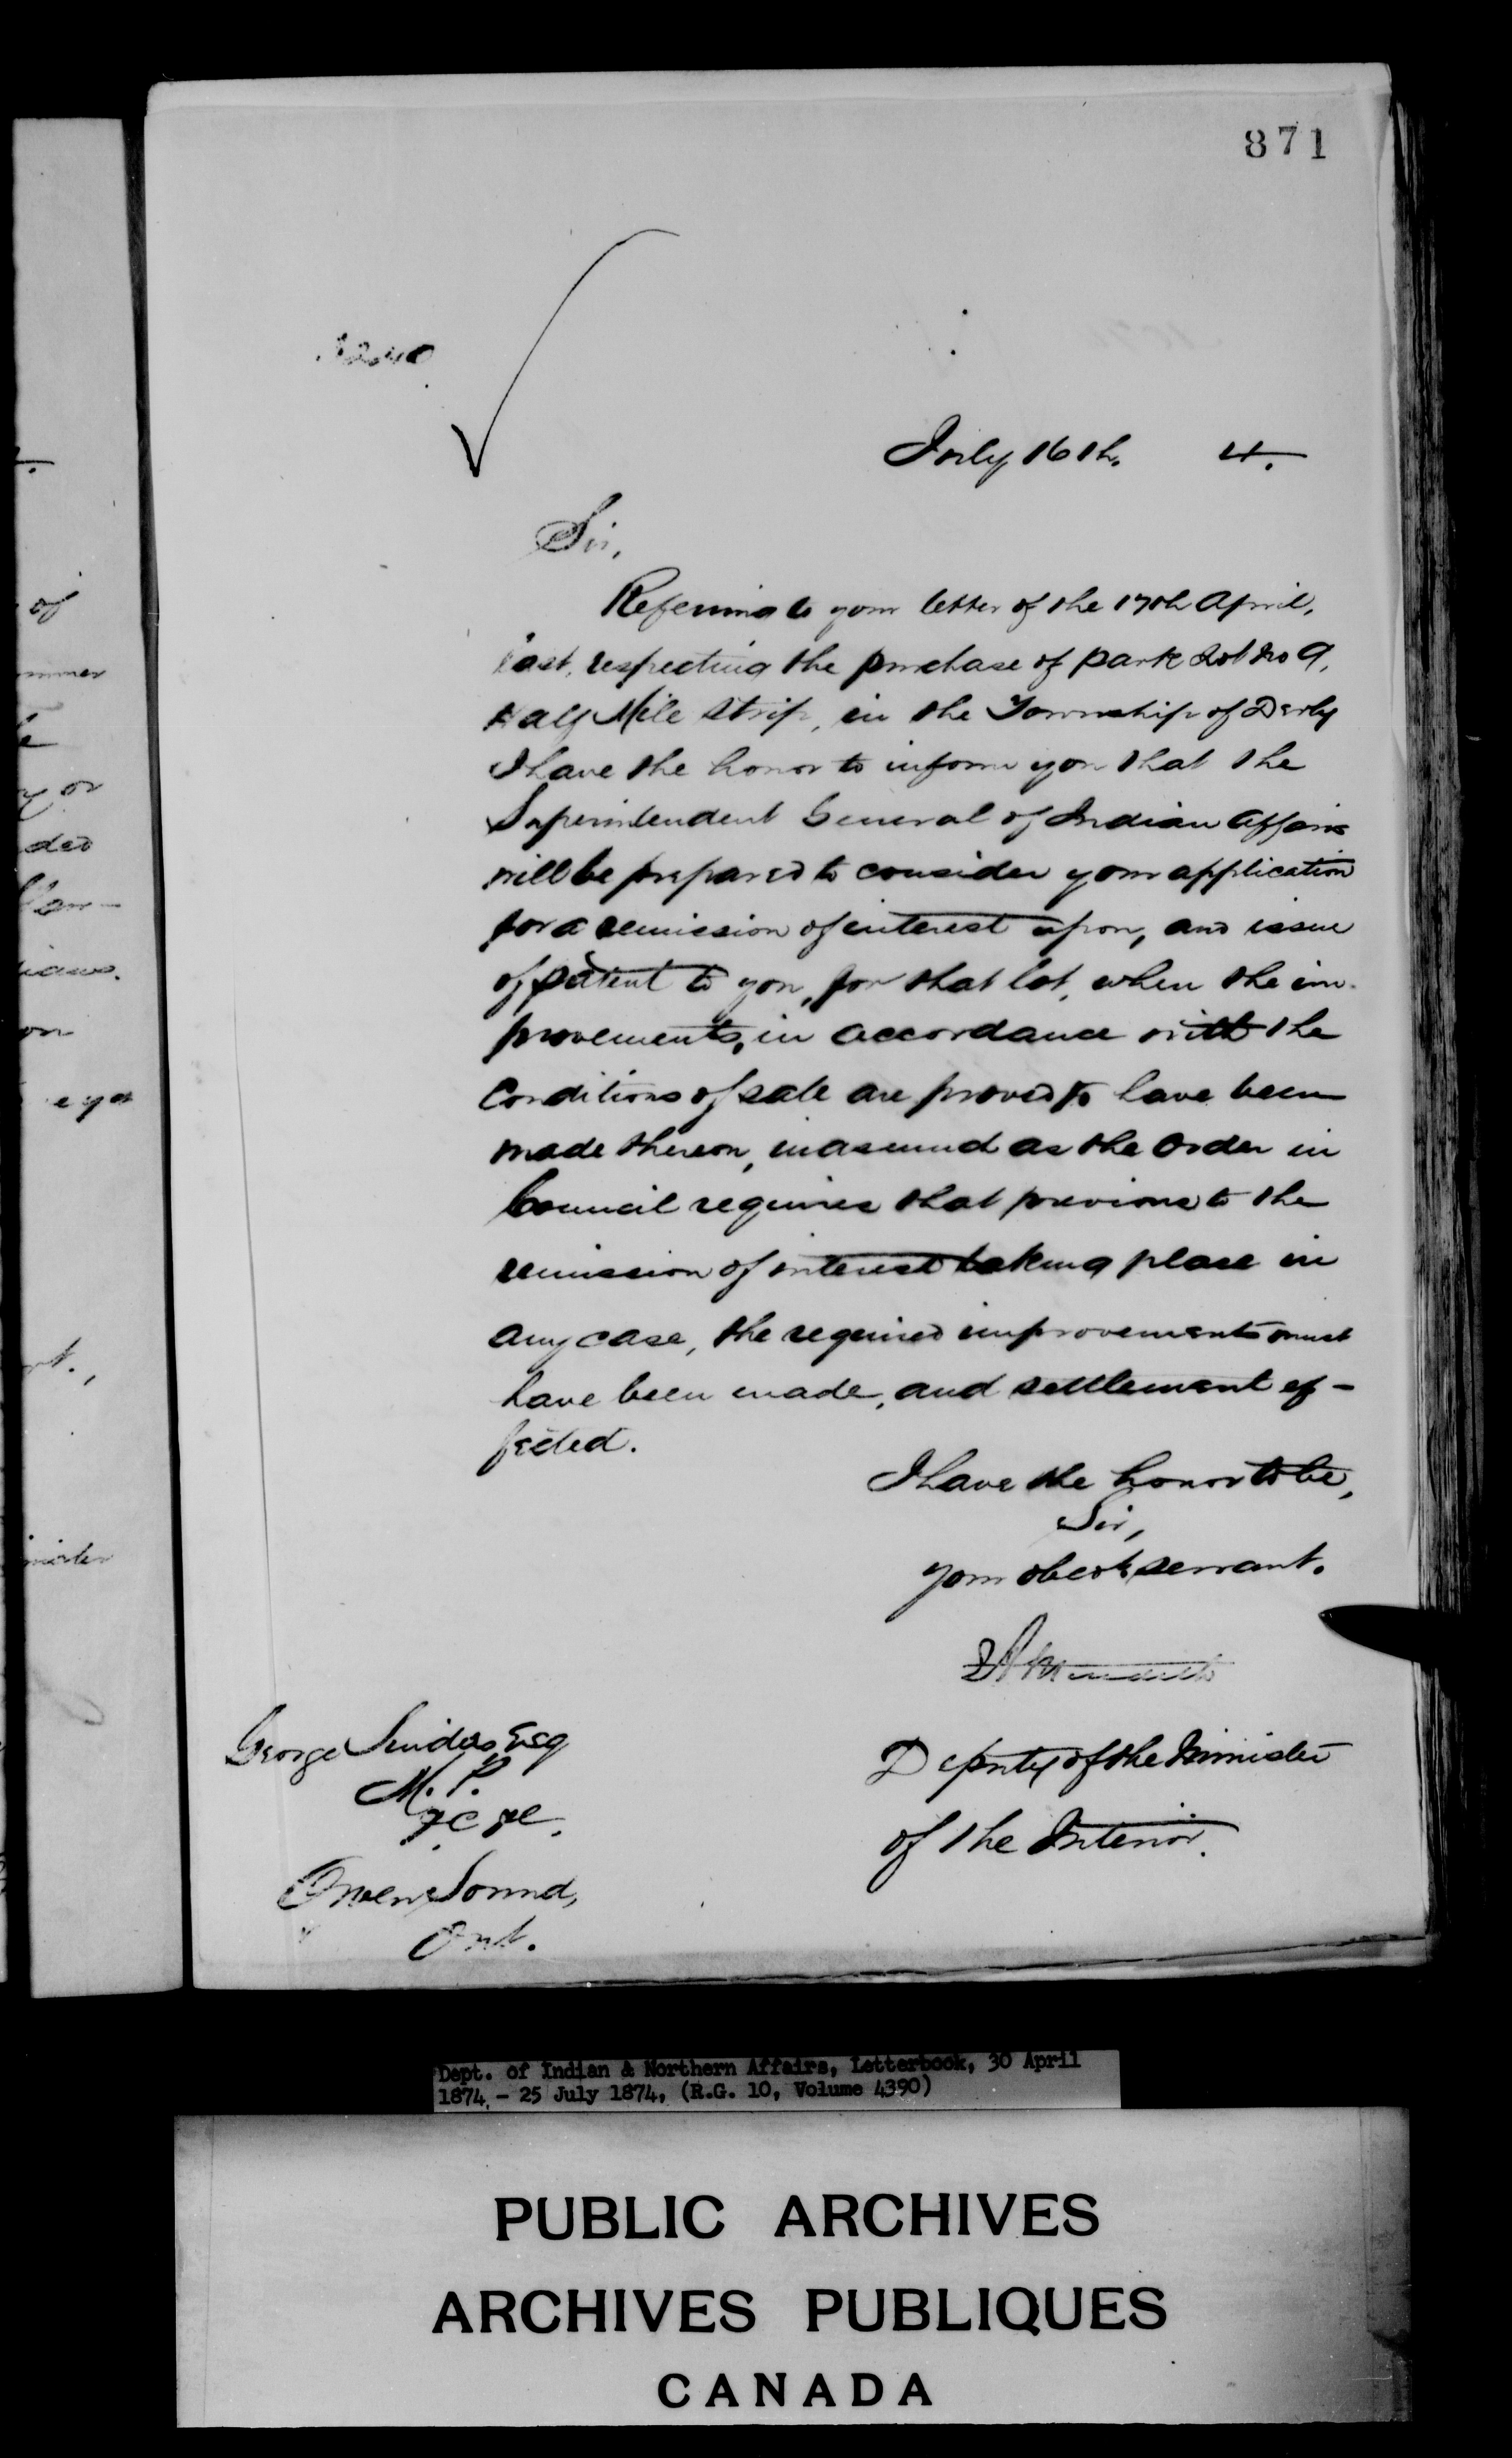 871
3240
July 16th. 4.
Sir,
Referring to your letter of the 17th April,
last, respecting the purchase of park Lot No 9,
Half Mile Strip, in the Township of Derby
I have the honor to inform you that the
Superintendent General of Indian Affairs
will be prepared to consider your application
for a remission of interest upon, and issue
of patent to you, for that lot, when the im-
provements, in accordance with the
Conditions of sale are proved to have been
made thereon, inasmuch as the Order in
Council requires that previous to the
remission of interest taking place in
any case, the required improvements must
have been made, and settlement ef-
fected.
I have the honor to be,
Sir,
your obedt servant.
Deputy of the Minister
of the Interior.
George Snider Esq
M. P.
&c &c.
Owen Sound,
Ont.
of
or
ded
on
Dept. of Indian & Northern Affairs, Letterbook, 30 April
1874 - 25 July 1874, (R.G. 10, Volume 4390)
PUBLIC ARCHIVES
ARCHIVES PUBLIQUES
CANADA